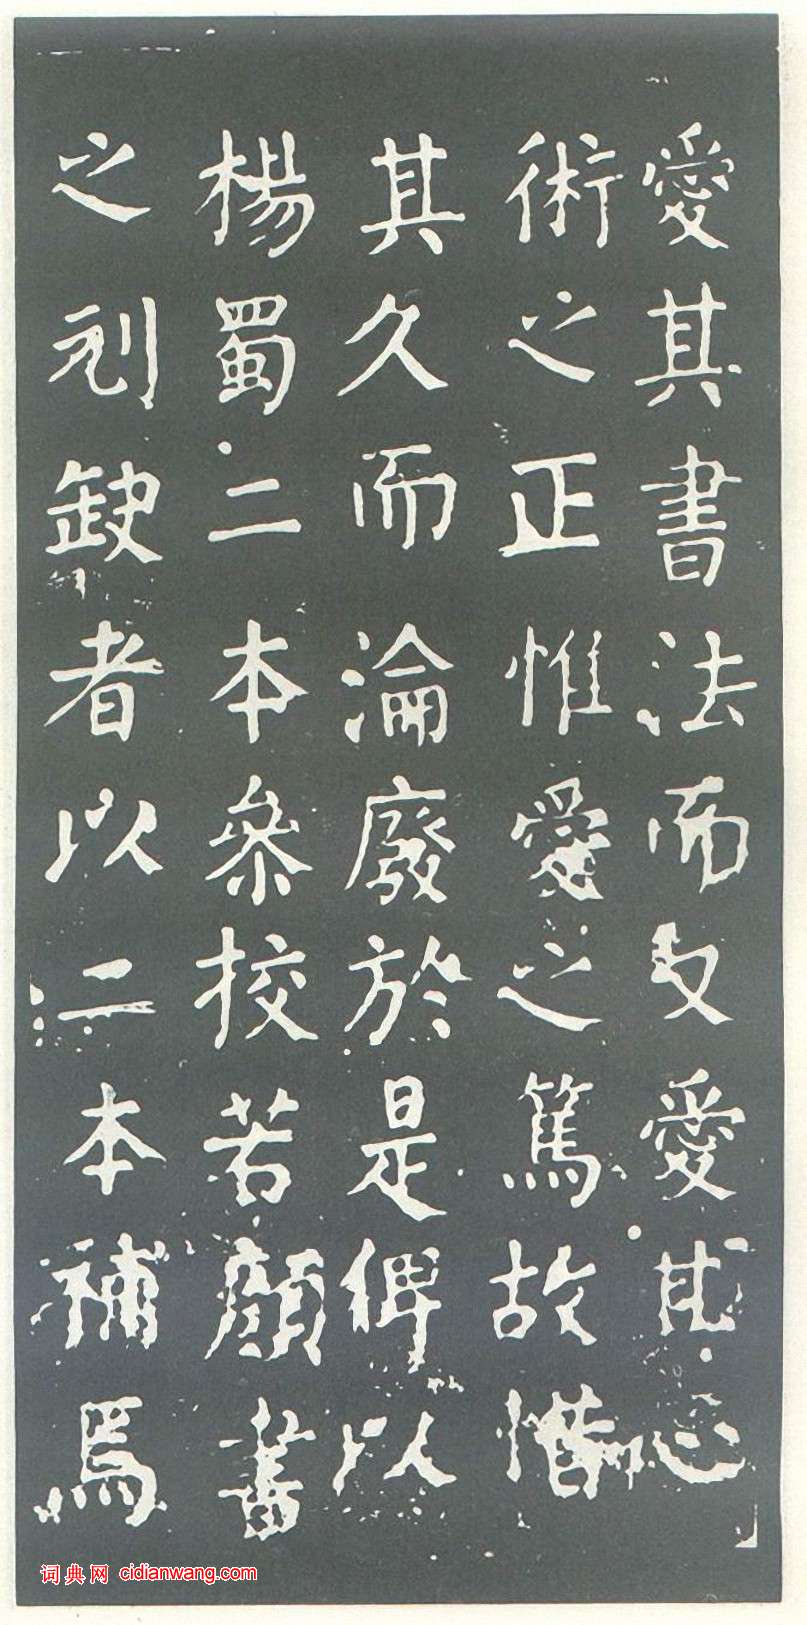 愛其書法而又愛其心
術之正惟愛之篤故惜
其久而淪廢於是俾以
楊蜀二本叅校若顔書
之刓缺者以二本補焉
词典网 cidianwang.com